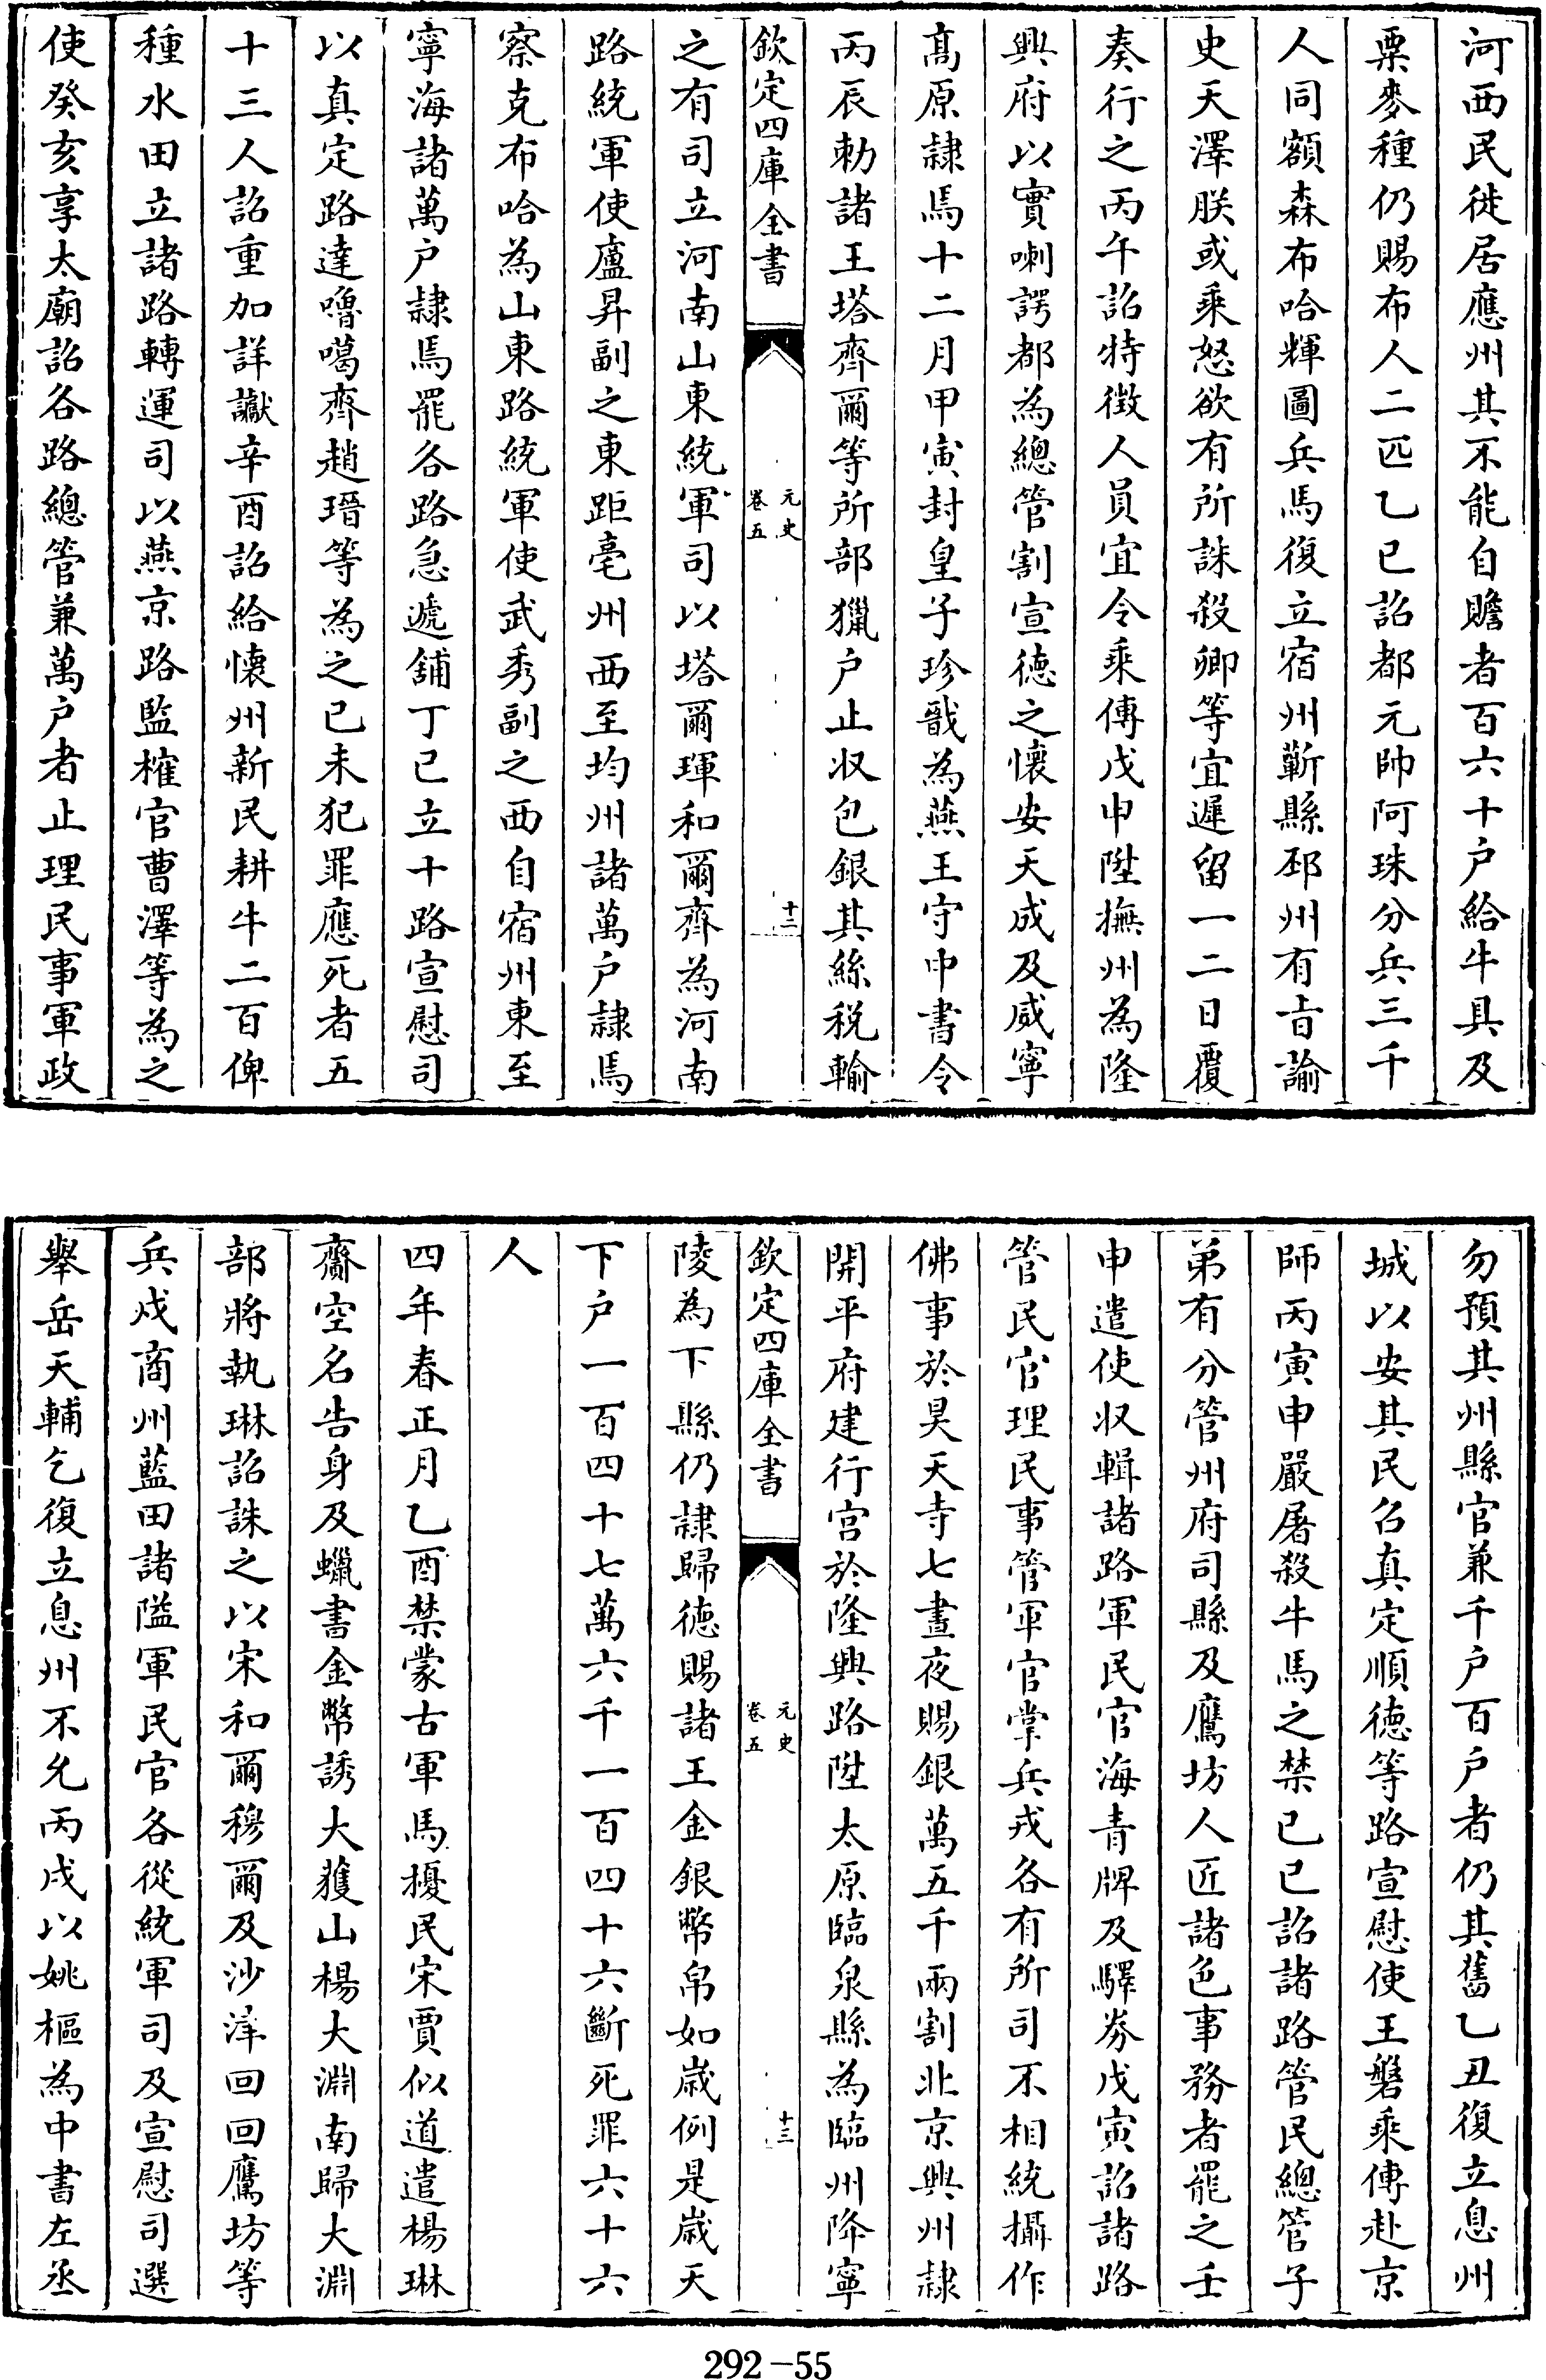 河西民徙居應州其不能自贍者百六十户給牛具及
粟麥種仍賜布人二匹乙巳詔都元帥阿珠分兵三千
人同額森布哈輝圖兵馬復立宿州蘄縣邳州有㫖諭
史天澤朕或乘怒欲有所誅殺卿等宜遲留一二日覆
奏行之丙午詔特徴人員宜令乘傳戊申陞撫州為隆
興府以實喇諤都為總管割宣徳之懷安天成及威寧
髙原隷焉十二月甲寅封皇子珍戩為燕王守中書令
丙辰勅諸王塔齊爾等所部獵户止収包銀其絲税輸
欽定四庫全書
元史
卷五
十二
之有司立河南山東統軍司以塔爾琿和爾齊為河南
路統軍使盧昇副之東距亳州西至均州諸萬户隷焉
察克布哈為山東路統軍使武秀副之西自宿州東至
寧海諸萬户隷焉罷各路急遞鋪丁巳立十路宣慰司
以真定路達嚕噶齊趙瑨等為之己未犯罪應死者五
十三人詔重加詳讞辛酉詔給懷州新民耕牛二百俾
種水田立諸路轉運司以燕京路監榷官曹澤等為之
使癸亥享太廟詔各路總管兼萬户者止理民事軍政
勿預其州縣官兼千户百户者仍其舊乙丑復立息州
城以安其民召真定順徳等路宣慰使王磐乘傳赴京
師丙寅申嚴屠殺牛馬之禁己巳詔諸路管民總管子
弟有分管州府司縣及鷹坊人匠諸色事務者罷之壬
申遣使収輯諸路軍民官海青牌及驛券戊寅詔諸路
管民官理民事管軍官掌兵戎各有所司不相統攝作
佛事於昊天寺七晝夜賜銀萬五千兩割北京興州隷
開平府建行宫於隆興路陞太原臨泉縣為臨州降寧
欽定四庫全書
元史
卷五
十三
陵為下縣仍隷歸徳賜諸王金銀幣帛如嵗例是嵗天
下户一百四十七萬六千一百四十六斷死罪六十六
人
四年春正月乙酉禁蒙古軍馬擾民宋賈似道遣楊琳
齎空名告身及蠟書金幣誘大獲山楊大淵南歸大淵
部將執琳詔誅之以宋和爾穆爾及沙澤回回鷹坊等
兵戍商州藍田諸隘軍民官各從統軍司及宣慰司選
舉岳天輔乞復立息州不允丙戌以姚樞為中書左丞
292-55